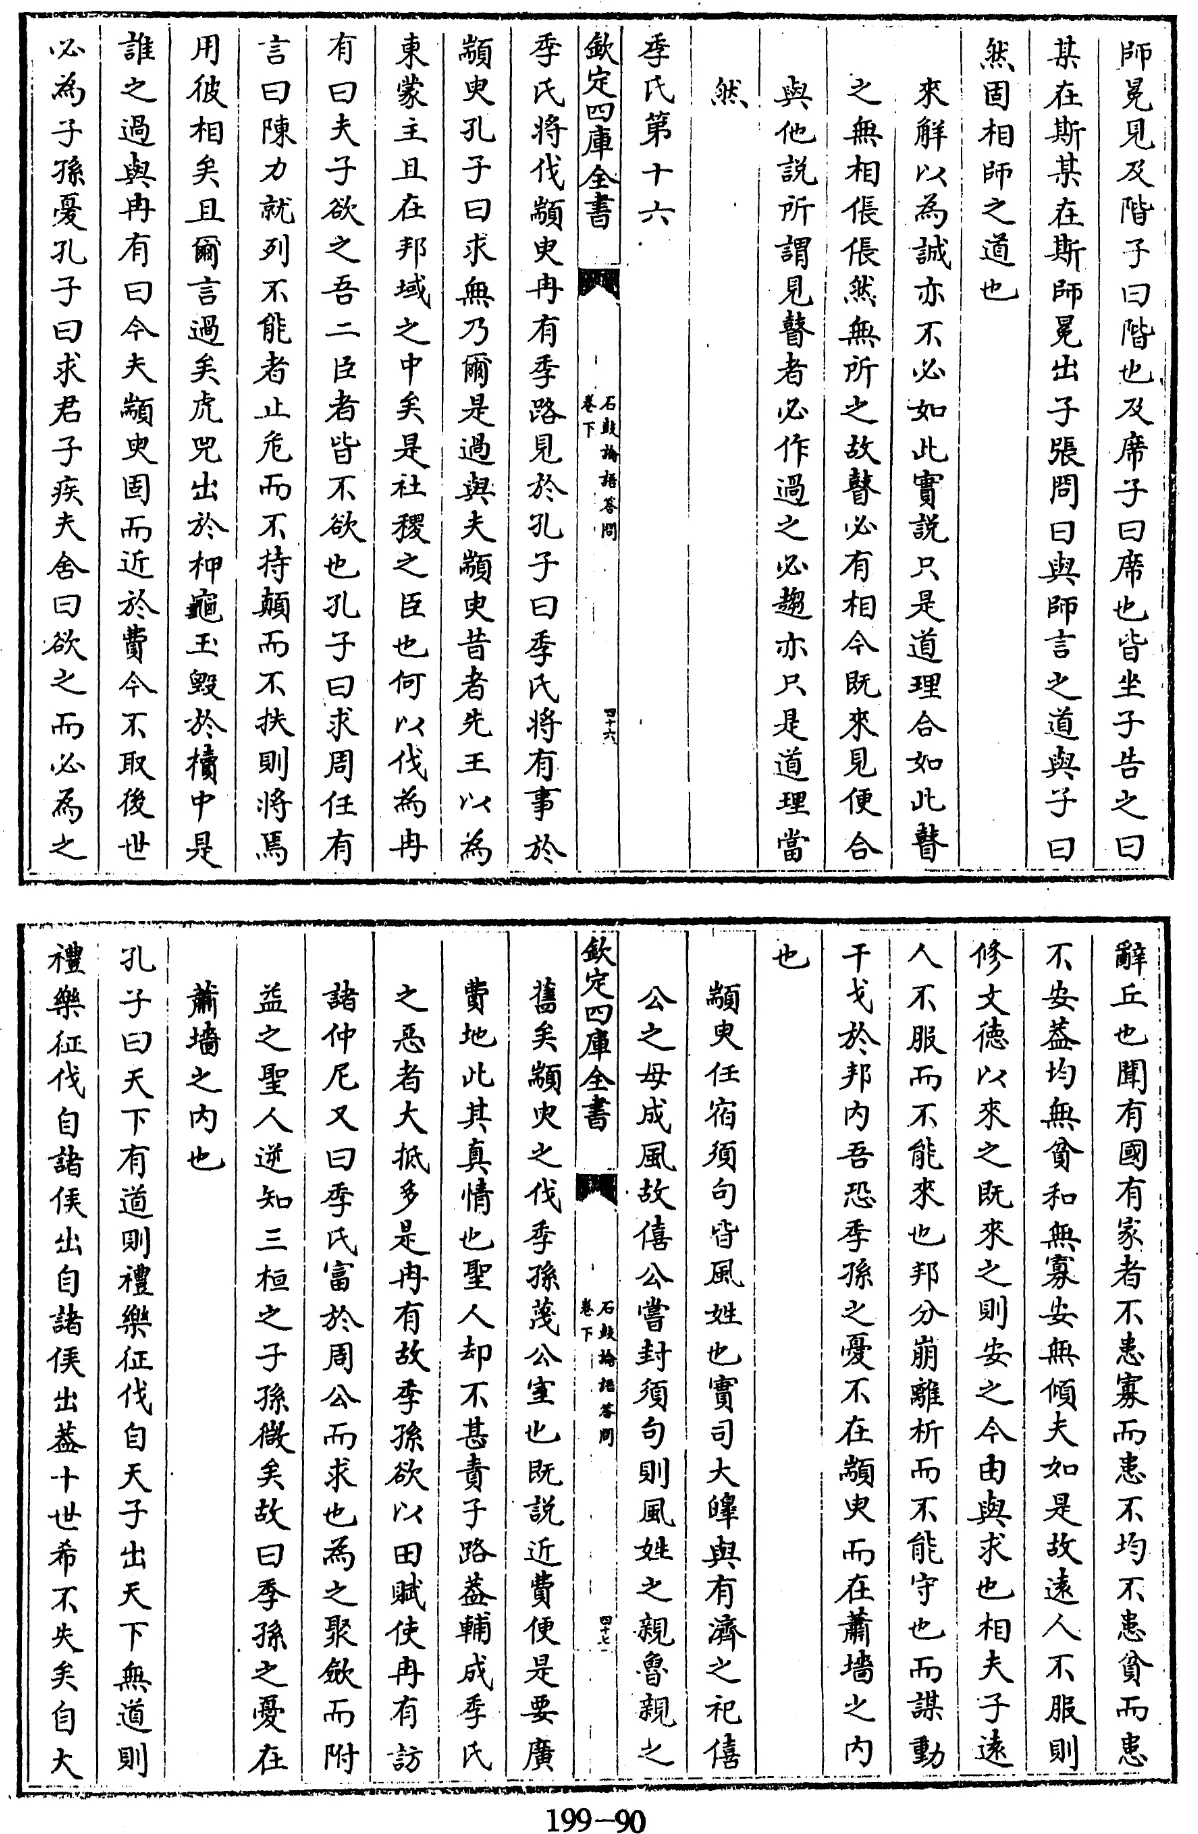 師冕見及階子曰階也及席子曰席也皆坐子告之曰
某在斯某在斯師冕出子張問曰與師言之道與子曰
然固相師之道也
來解以為誠亦不必如此實説只是道理合如此瞽
之無相倀倀然無所之故瞽必有相今既來見便合
與他説所謂見瞽者必作過之必趨亦只是道理當
然
季氏第十六
欽定四庫全書
石鼓論語答問
卷下
四十六
季氏將伐顓臾冉有季路見於孔子曰季氏將有事於
顓臾孔子曰求無乃爾是過與夫顓臾昔者先王以為
東蒙主且在邦域之中矣是社稷之臣也何以伐為冉
有曰夫子欲之吾二臣者皆不欲也孔子曰求周任有
言曰陳力就列不能者止危而不持顛而不扶則將焉
用彼相矣且爾言過矣虎兕出於柙龜玉毁於櫝中是
誰之過與冉有曰今夫顓臾固而近於費今不取後世
必為子孫憂孔子曰求君子疾夫舍曰欲之而必為之
辭丘也聞有國有家者不患寡而患不均不患貧而患
不安葢均無貧和無寡安無傾夫如是故逺人不服則
修文德以來之既來之則安之今由與求也相夫子逺
人不服而不能來也邦分崩離析而不能守也而謀動
干戈於邦内吾恐季孫之憂不在顓臾而在蕭墻之内
也
顓臾任宿須句皆風姓也實司大皥與有濟之祀僖
公之母成風故僖公嘗封須句則風姓之親魯親之
欽定四庫全書
石鼓論語答問
卷下
四十七
舊矣顓臾之伐季孫蔑公室也既説近費便是要廣
費地此其真情也聖人却不甚責子路葢輔成季氏
之惡者大抵多是冉有故季孫欲以田賦使冉有訪
諸仲尼又曰季氏富於周公而求也為之聚斂而附
益之聖人逆知三桓之子孫微矣故曰季孫之憂在
蕭墻之内也
孔子曰天下有道則禮樂征伐自天子出天下無道則
禮樂征伐自諸侯出自諸侯出葢十世希不失矣自大
199-90